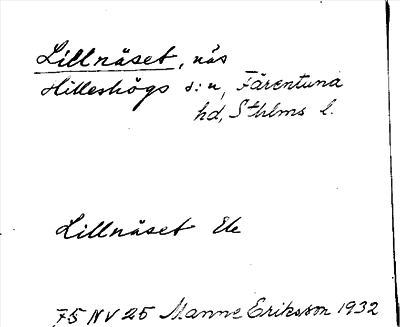 Lillnäset, näs
Hilleshögs s:n, Färentuna
hd, Sthlms l.
Lillnäset Ek
75 NV 25 Manne Eriksson 1932